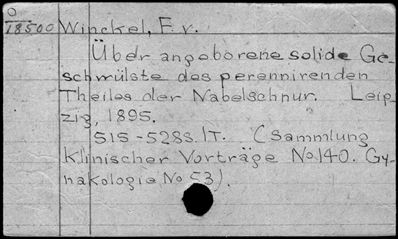 O
18500 Winckel, F. v.
Über angeborene solide Ge-
schwülste des perennirenden
Theiles der Nabelschnur. Leip-
zig, 1895.
515-528 S. 1T. (Sammlung
Klinischer Vorträge No. 140. Gy-
nakologie No 53).